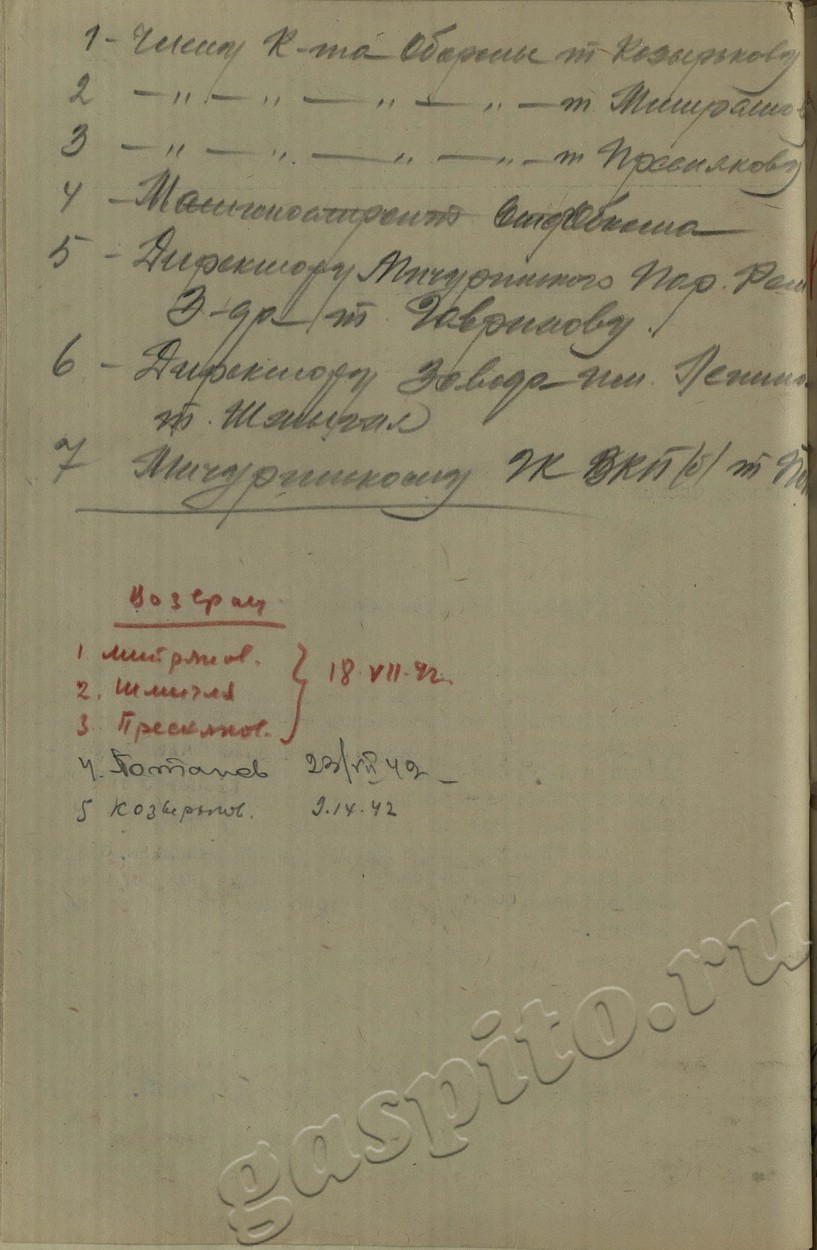 1 - Члену К-та Обороны т Козырькову
2 - " - " - " - " - т. Митрашов
3 - " - " - " - " - т Пресняков
4 - Машиностроит Отд Обкома
5 - Директору Мичуринского Пар. Рем
З-да т. Гаврилову.
6 - Директору Завода им. Ленина
т. Шмигля
7 Мичуринскому ГК ВКП(б) т По
Возврат
1. Митряков.
2. Шмигля
3. Пресняков.
18.VII.42г.
4. Потапов 23/VII 42
5 Козырьков. 9.IX.42
gaspito.ru